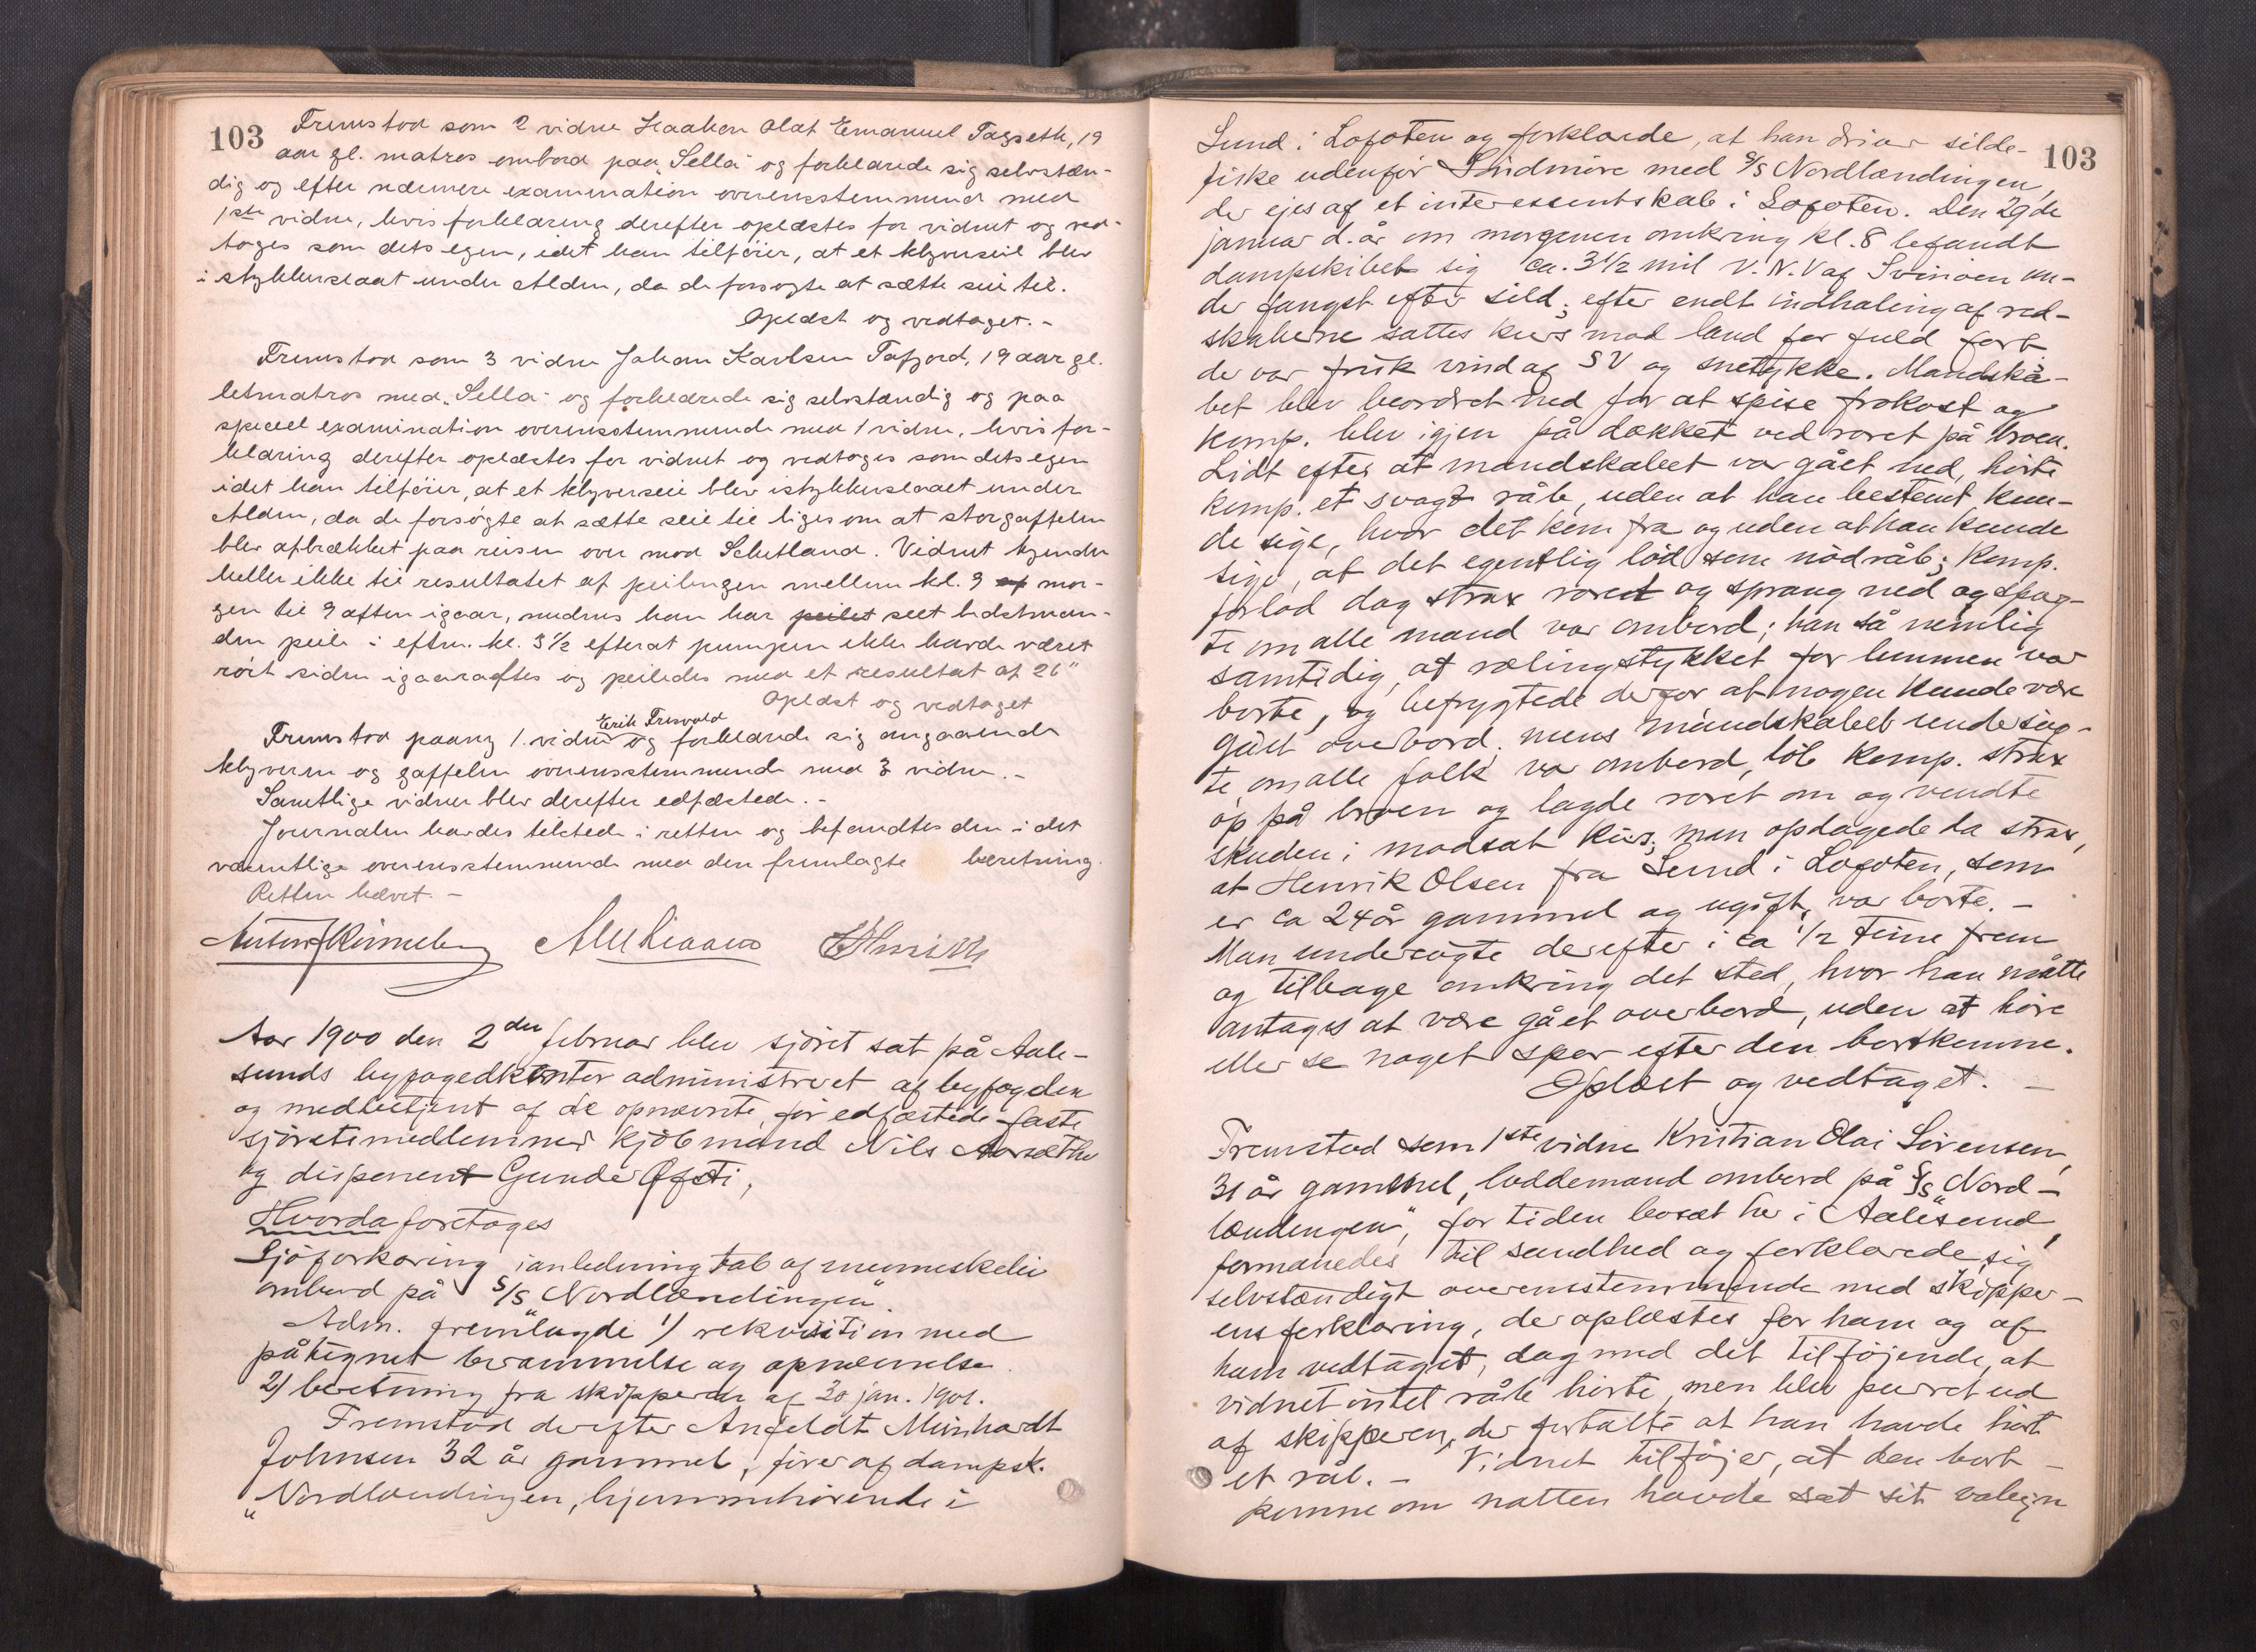 103
Fremstod som 2 vidne Haakon Olaf Emanuel Tagseth, 19
aar gl. matros ombord paa "Sella" og forklarede sig selvstæn-
dig og efter nærmere examination overensstemmend med
1ste vidne, hvis forklaring derefter oplæstes for vidnet og ved-
toges som dets egen, idet han tilföier, at et klyverseil blev
istykkerslaat under Alden, da de forsøgte at sætte seil til.
Oplæst og vedtaget. -
Fremstod som 3 vidne Johan Karlsen Tafjord, 19 aar gl.
letmatros med "Sella" og forklarede sig selvstændig og paa
speciel examination overensstemmende med 1 vidne, hvis for-
klaring derefter oplæstes for vidnet og vedtoges som dets egen
idet han tilföier, at et klyverseil blev istykkerslaaet under
Alden, da de forsøgte at sætte seil til ligesom at storgaffelen
blev afbrækket paa reisen over mod Schetland. Vidnet kjender
heller ikke til resultatet af peilingen mellem kl. 9 af mor-
gen til 9 aften igaar, medens han har peilet seet bedstman-
den peile i efterm. kl. 3 1/2 efterat pumpen ikke havde været
rört siden igaaraftes og peiledes med et resultat af 26"
Oplæst og vedtaget
Fremstod paany 1. vidne Erik Fresvold og forklarede sig angaaende
klyveren og gaffelen overensstemmende med 3 vidne. -
Samtlige vidner blev derefter edfæstede. -
Journalen havdes tilstede i retten og befandtes den i det
væsentlige overensstemmende med den fremlagte beretning.
Retten hævet. -
Aar 1900 den 2den februar blev sjöret sat på Aale-
sunds byfogedkontor administreret af byfogden
og medbetjent af de opnævnte, för edfæstede faste
sjöretsmedlemmer kjöbmand Nils Aarsæther
og disponent Gunder Ofsti,
Hvorda foretoges
Sjöforkaring i anledning tab af menneskeliv
ombord på S/S "Nordlændingen".
Adm. fremlagde 1/ rekvisition med
påtegnet berammelse og opnævnelse
2/ beretning fra skipperen af 30 jan. 1901.
Fremstod derefter Anfeldt Meinhardt
Johnsen 32 år gammel, förer af dampsk.
"Nordlændingen, hjemmehörende i
103
Sund i Lofoten og forklarde, at han driver silde-
fiske udenfor Söndmöre med S/S Nordlændingen,
der ejes af et interessentskab i Lofoten. Den 29de
januar d. år om morgenen omkring kl. 8 befandt
dampskibet sig ca. 3 1/2 mil V.N.V af Svinöen un-
der fangst efter sild; efter endt indhaling af red-
skaberne sattes kurs mod land for fuld fart
der var frisk vind af SV og snetykke. Mandska-
bet blev beordret ned for at spise frokost og
komp. blev igjen på dækket ved roret på broen.
Lidt efter at mandskabet var gået ned, hörte
komp. et svagt råb, uden at han bestemt kun-
de sige, hvor det kom fra og uden at han kunde
sige, at det egentlig löd som nödråb; komp.
forlod dog strax roret og sprang ned og spag-
te om alle mand var ombord; han så nemlig
samtidig, at rælingstykket for lemmen var
borte, og befrygtede derfor at nogen kunde være
gået overbord. mens mandskabet undersøg-
te, om alle folk var ombord, löb komp. strax
op på broen og lagde roret om og vendte
skuden i modsat kurs; man opdagede da strax,
at Henrik Olsen fra Sund i Lofoten, som
er ca 24 år gammel og ugift, var borte. -
Man undersögte derefter i ca 1/2 time frem
og tilbage omkring det sted, hvor han måtte
antages at være gået overbord, uden at höre
eller se noget spor efter den bortkomne.
Oplæst og vedtaget. -
Fremstod som 1ste vidne Kristian Olai Sörensen,
31 år gammel, loddemand ombord på S/S "Nord-
lændingen", for tiden bosat her i Aalesund,
formanedes til sandhed og forklarede sig
selvstændigt overensstemmende med skipper-
ens forklaring, der oplæstes for ham og af
ham vedtaget, dog med det tilföjende, at
vidnet intet råb hörte, men blev purret ud
af skipperen, der fortalte at han havde hört
et råb. - Vidnet tilföjer, at den bort-
komne om natten havde sat sit